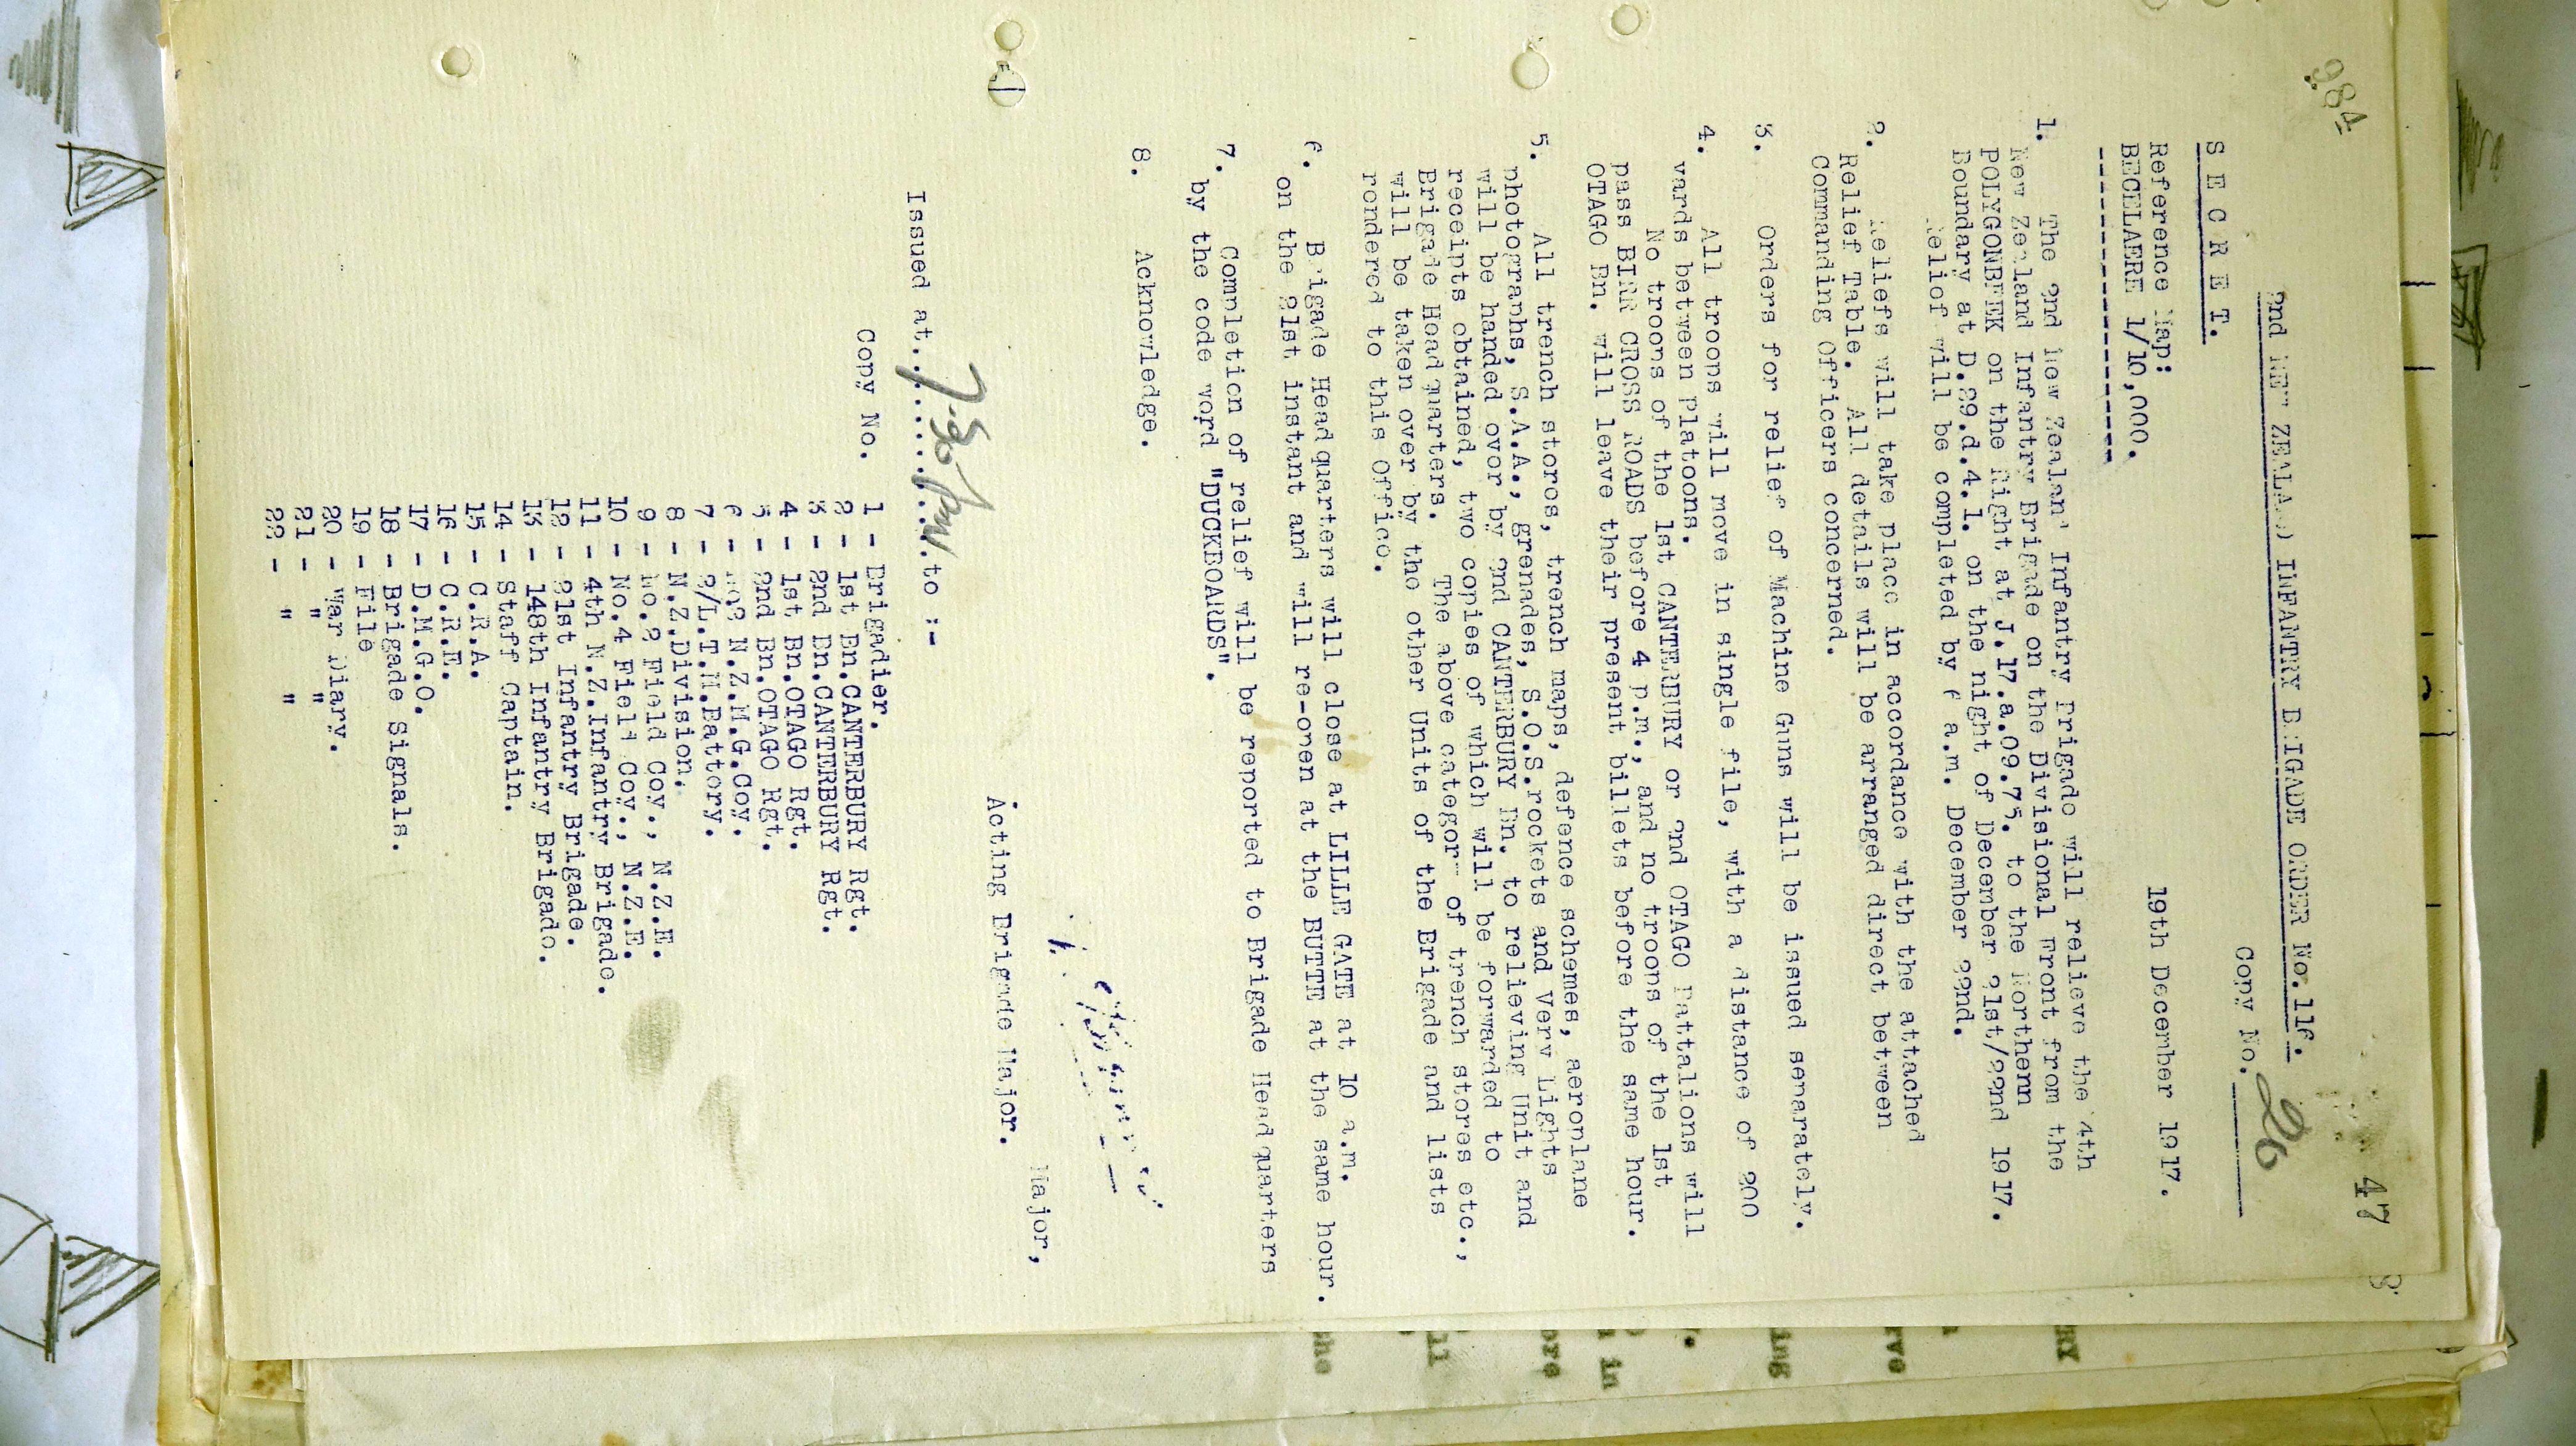 984
47
2nd NEW ZEALAND INFANTRY BRIGADE ORDER No.116.
Copy No. 20
S E C R E T.
19th December 1917.
Reference Map:
BECELAERE 1/10,000.
---------------------
1. The 2nd New Zealand Infantry Brigade will relieve the 4th
New Zealand Infantry Brigade on the Divisional Front from the
POLYGONBEEK on the Right at J.17.a.09.75. to the Northern
Boundary at D.29.d.4.1. on the night of December 21st/22nd 1917.
Relief will be completed by 6 a.m. December 22nd.
2. Reliefs will take place in accordance with the attached
Relief Table. All details will be arranged direct between
Commanding Officers concerned.
3. Orders for relief of Machine Guns will be issued separately.
4. All troops will move in single file, with a distance of 200
yards between Platoons.
No troops of the 1st CANTERBURY or 2nd OTAGO Battalions will
pass BIRR CROSS ROADS before 4 p.m., and no troops of the 1st
OTAGO Bn. will leave their present billets before the same hour.
5. All trench stores, trench maps, defence schemes, aeroplane
photographs, S.A.A., grenades, S.O.S.rockets and Very Lights
will be handed over by 2nd CANTERBURY Bn. to relieving Unit and
receipts obtained, two copies of which will be forwarded to
Brigade Headquarters. The above category of trench stores etc.,
will be taken over by the other Units of the Brigade and lists
rendered to this Office.
6. Brigade Headquarters will close at LILLE GATE at 10 a.m.
on the 21st instant and will re-open at the BUTTE at the same hour.
7. Completion of relief will be reported to Brigade Headquarters
by the code word "DUCKBOARDS".
8. Acknowledge.
Major,
Acting Brigade Major.
Issued at. 7.30 pm .to :-
Copy No. 1 - Brigadier.
2 - 1st Bn.CANTERBURY Rgt.
3 - 2nd Bn.CANTERBURY Rgt.
4 - 1st Bn.OTAGO Rgt.
5 - 2nd Bn.OTAGO Rgt.
6 - N.Z.M.G.Coy.
7 - 2/L.T.M.Battery.
8 - N.Z.Division.
9 - No.2 Field Coy., N.Z.E.
10 - No.4 Field Coy., N.Z.E.
11 - 4th N.Z.Infantry Brigade.
12 - 21st Infantry Brigade.
13 - 148th Infantry Brigade.
14 - Staff Captain.
15 - C.R.A.
16 - C.R.E.
17 - D.M.G.O.
18 - Brigade Signals.
19 - File
20 - War Diary.
21 - " "
22 - " "
RY
rve
ing
in
ore
ll
he